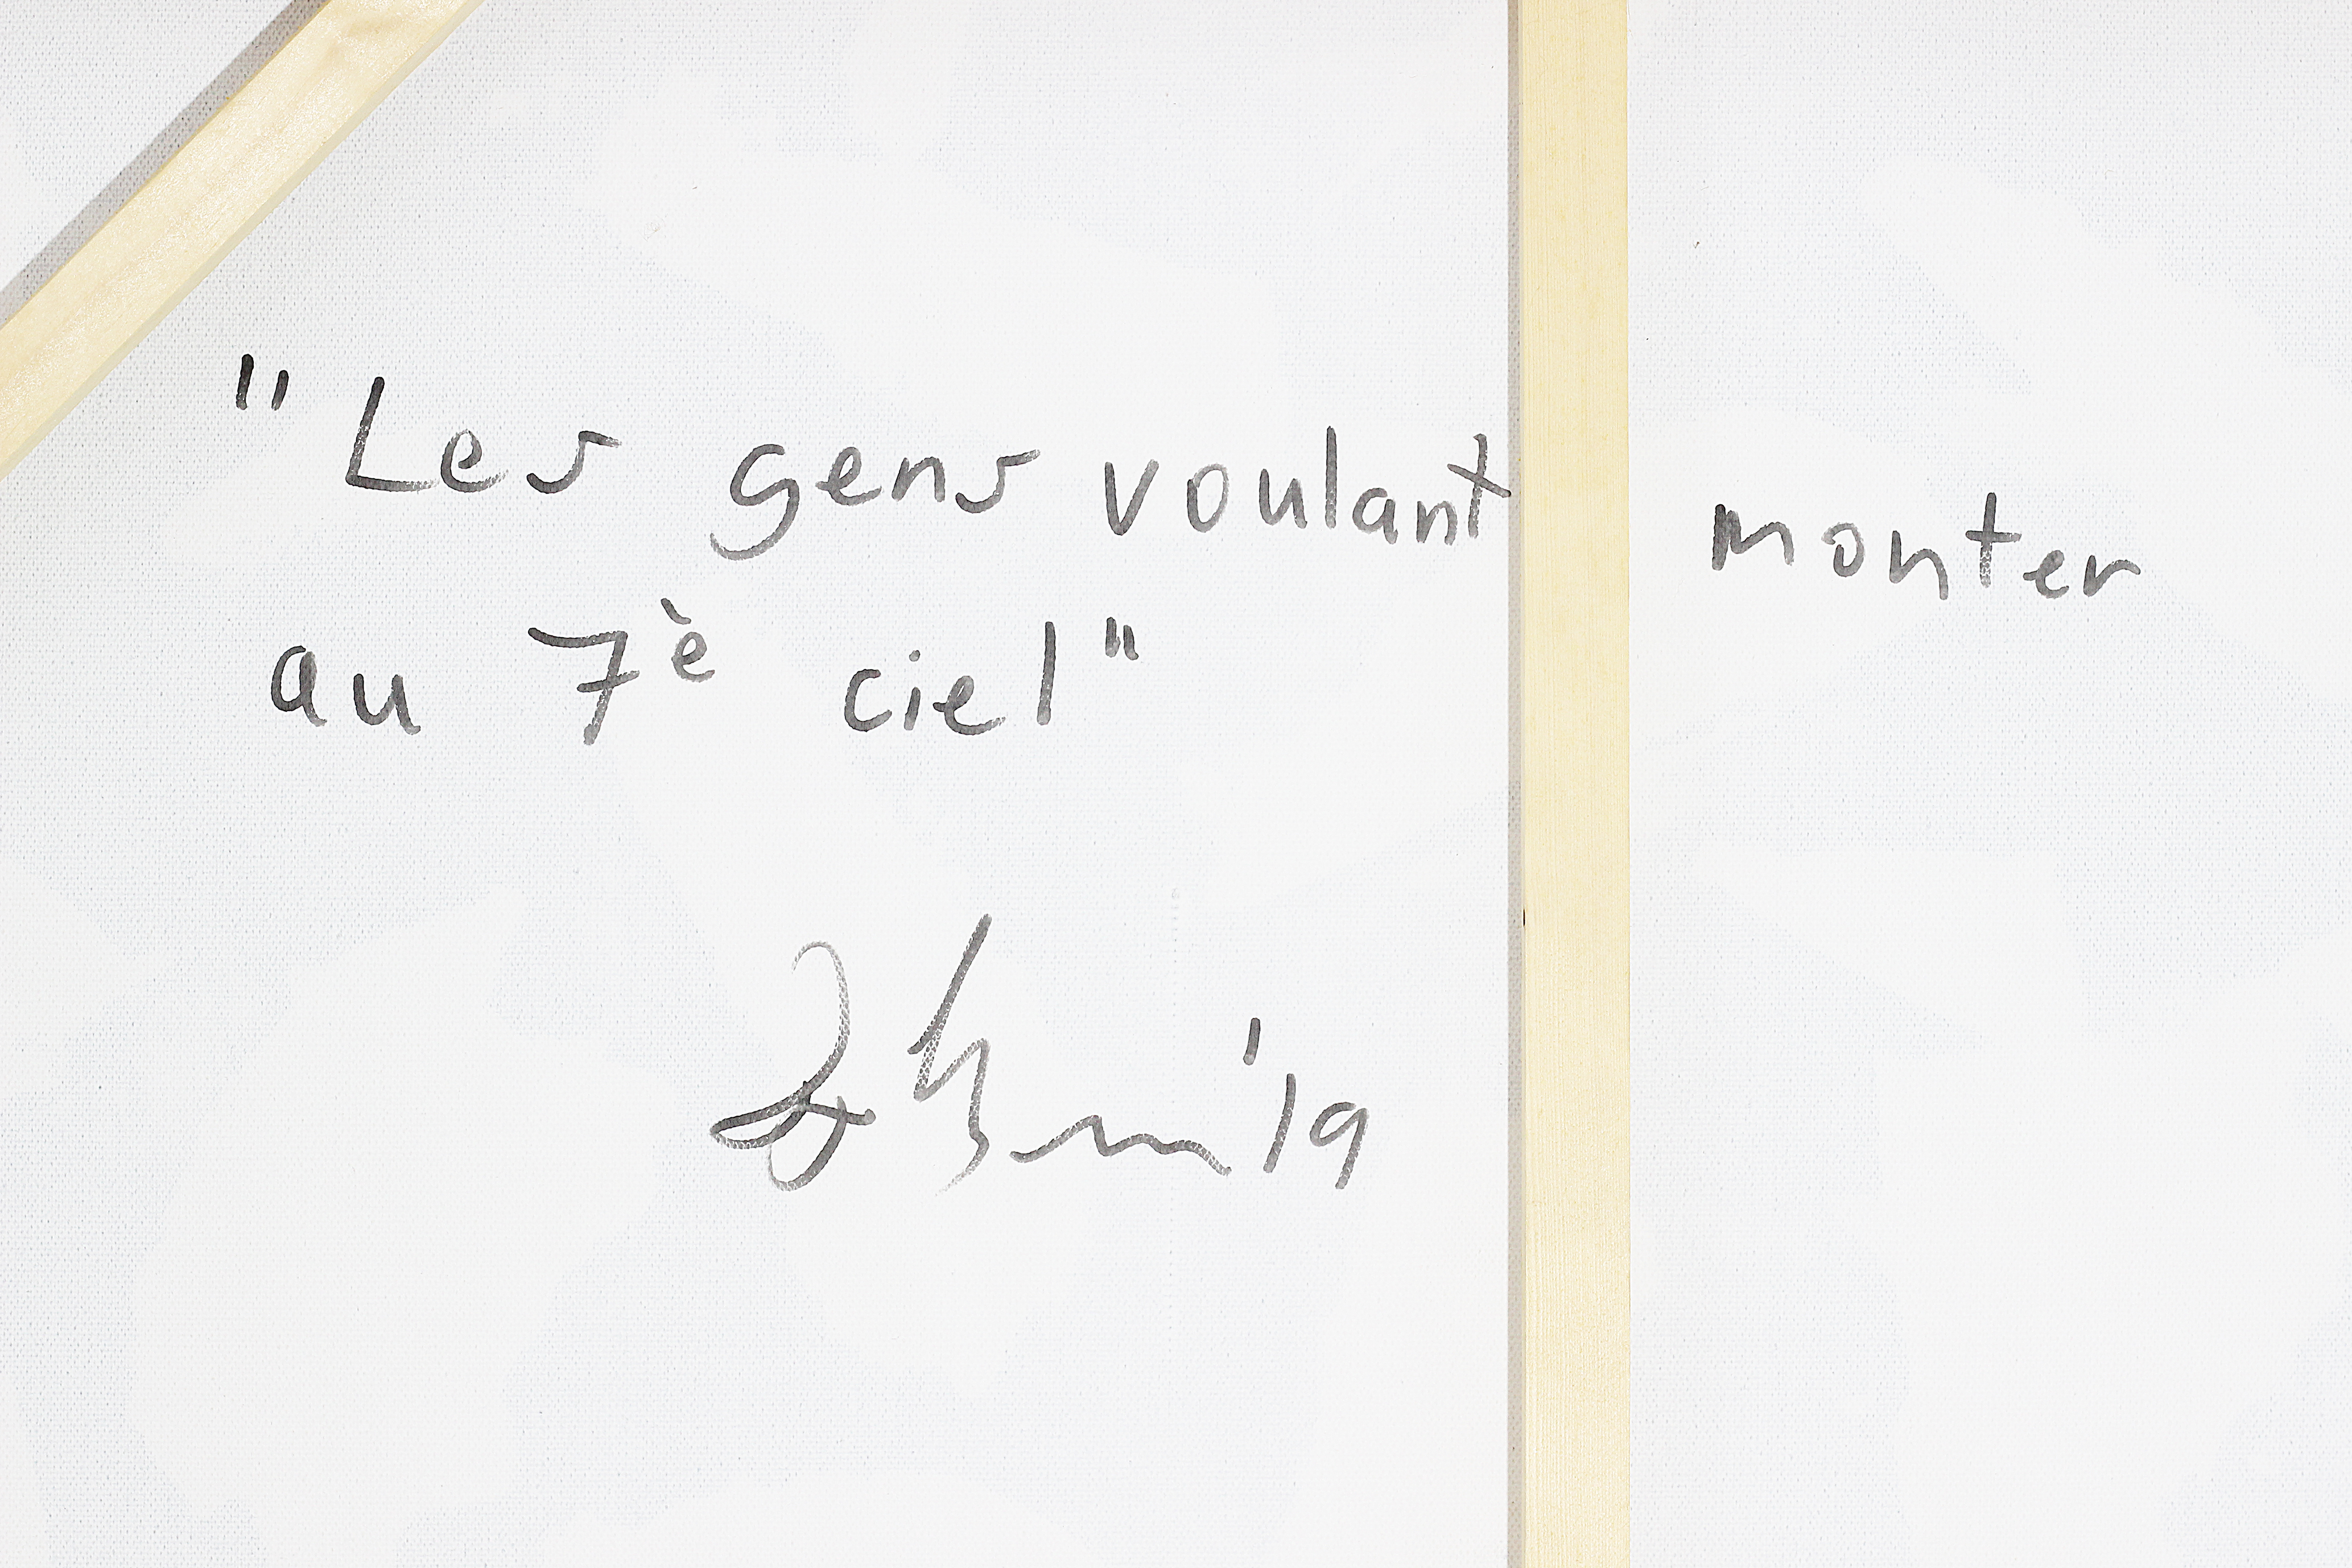 "Les gens voulant monter
au 7è ciel"
'19